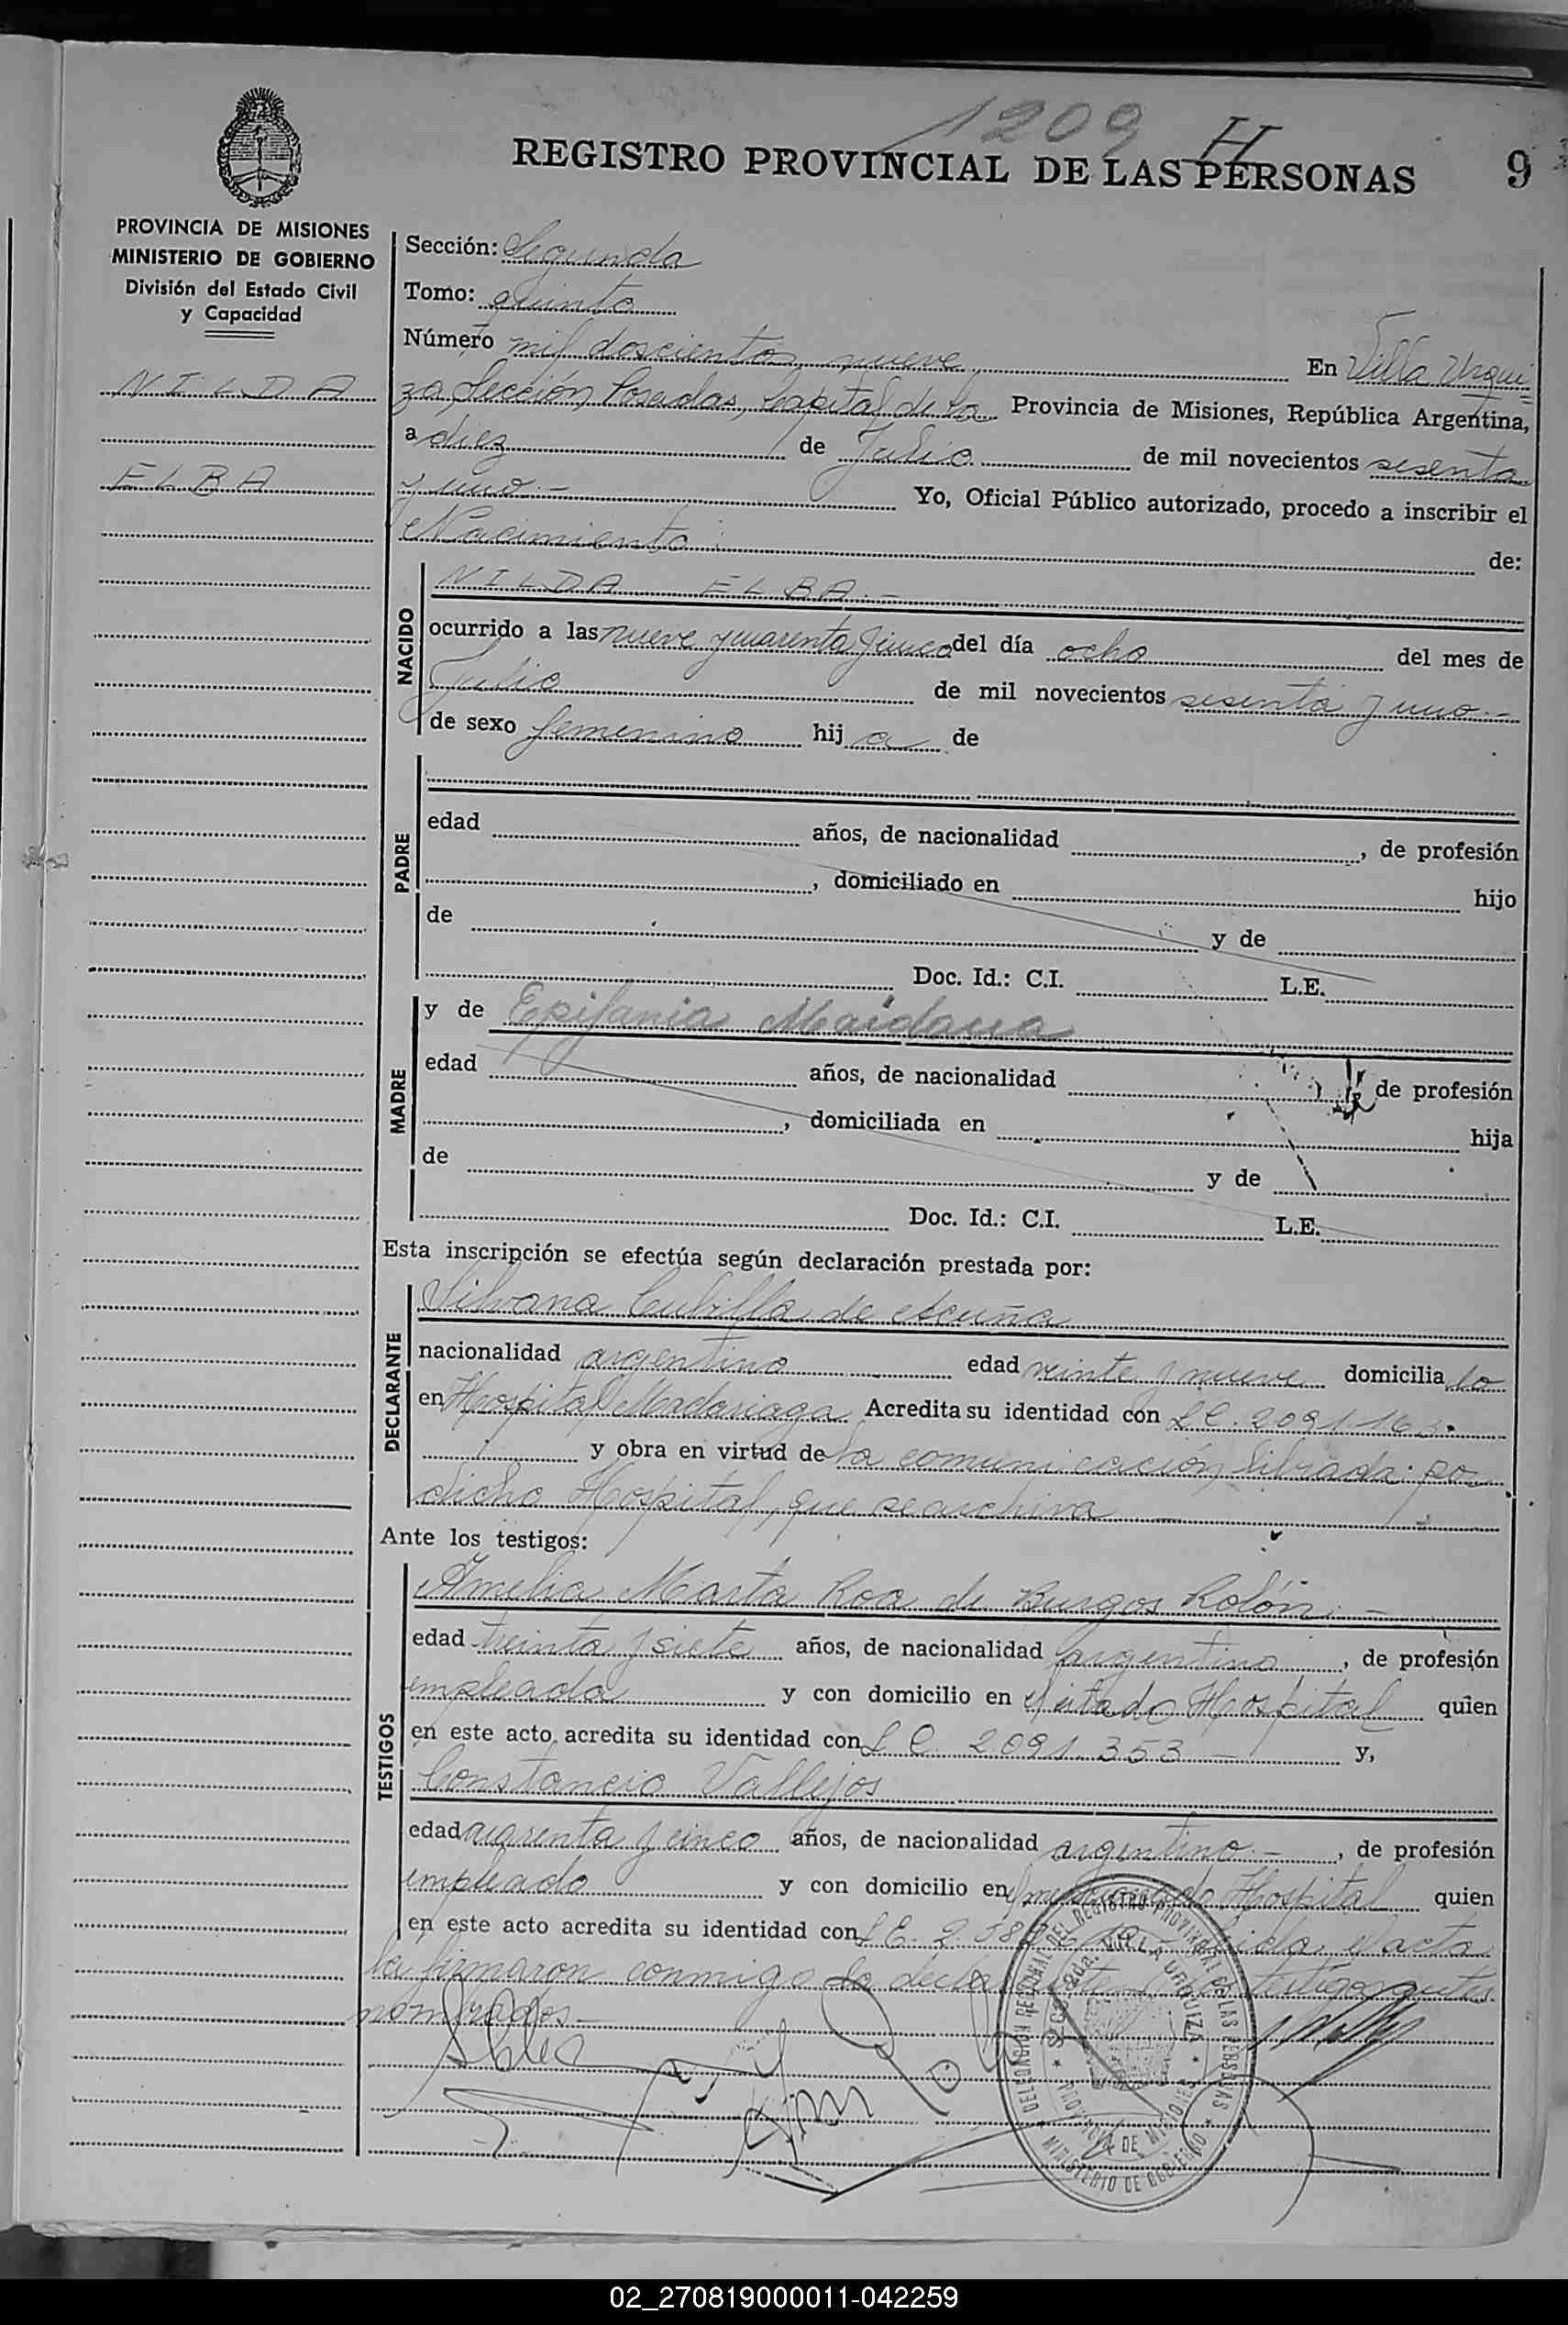 1209 H
REGISTRO PROVINCIAL DE LAS PERSONAS 9
PROVINCIA DE MISIONES
MINISTERIO DE GOBIERNO
División del Estado Civil
y Capacidad
NILDA
ELBA
Sección: Segunda
Tomo: quinto
Número mil doscientos nueve En Villa Urqui
za, Sección Posadas, Capital de la Provincia de Misiones, República Argentina,
a diez de Julio de mil novecientos sesenta
y uno.- Yo, Oficial Público autorizado, procedo a inscribir el
Nacimiento: de:
NACIDO
NILDA ELBA.-
ocurrido a las nueve y cuarenta y cinco del día ocho del mes de
Julio de mil novecientos sesenta y uno.-
de sexo femenino hija de
PADRE
edad años, de nacionalidad , de profesión
, domiciliado en hijo
de y de
Doc. Id.: C.I. L.E.
MADRE
y de Epifania Maidana
edad años, de nacionalidad de profesión
, domiciliada en hija
de y de
Doc. Id.: C.I. L.E.
Esta inscripción se efectúa según declaración prestada por:
DECLARANTE
Silvana Cubilla de Acuña
nacionalidad argentina edad veinte y nueve domicilia da
en Hospital Madariaga Acredita su identidad con L.C. 2.091.163.
y obra en virtud de la comunicación librada por
dicho Hospital, que se archiva
Ante los testigos:
TESTIGOS
Amelia Marta Roa de Burgos Rolón.-
edad treinta y siete años, de nacionalidad argentina , de profesión
empleada y con domicilio en el citado Hospital quien
en este acto acredita su identidad con L.C. 2.091.353 - y,
Constancio Vallejos
edad cuarenta y cinco años, de nacionalidad argentino.- , de profesión
empleado y con domicilio en el mencionado Hospital quien
en este acto acredita su identidad con L.E. Leída el acta
la firmaron conmigo la declarante y los testigos antes
nombrados.-
DELEGACIÓN REGIONAL DEL REGISTRO PROVINCIAL DE LAS PERSONAS
VILLA URQUIZA
PROVINCIA DE MISIONES
MINISTERIO DE GOBIERNO
02_270819000011-042259